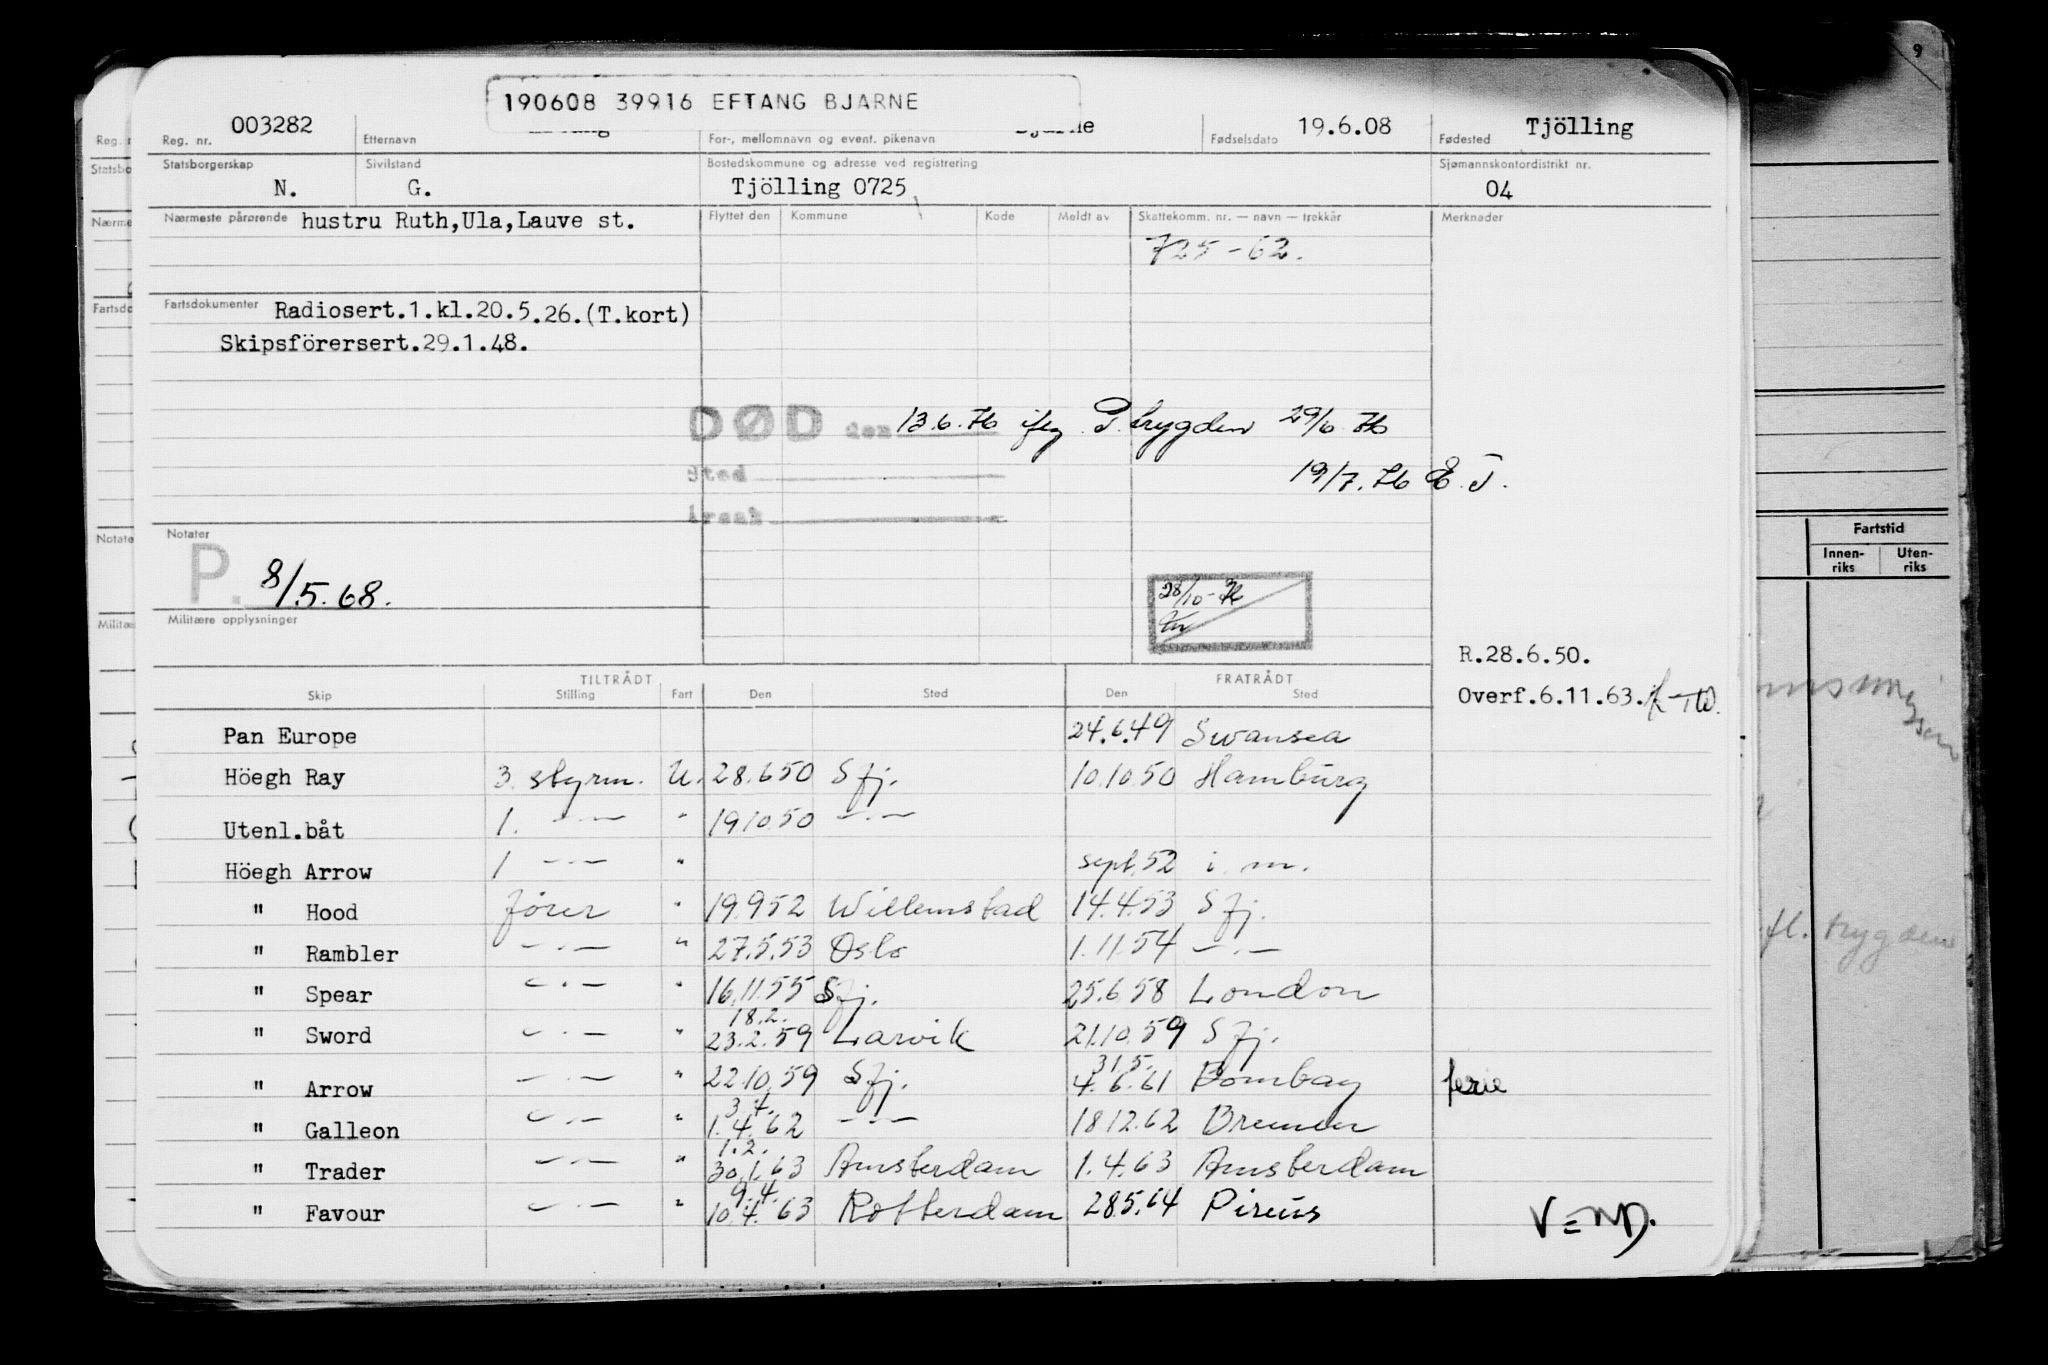 190608 39916 EFTANG BJARNE
Reg. nr. 003282 Etternavn For-, mellomnavn og event. pikenavn Fødselsdato 19.6.08 Fødested Tjölling
Statsborgerskap N. Sivilstand G. Bostedskommune og adresse ved registrering Tjölling 0725 Sjømannskontordistrikt nr. 04
Nærmeste pårørende hustru Ruth,Ula,Lauve st. Flyttet den Kommune Kode Meldt av Skattekomm. nr. — navn — trekkår Merknader
725-62.
Fartsdokumenter Radiosert.1.kl.20.5.26.(T.kort)
Skipsförersert.29.1.48.
DØD den 13.6.76 ifлg P.trygden 29/6 76
Sted 19/7.76 E.T.
Årsak
Notater
P. 8/5.68.
28/10-76
Militære opplysninger
R.28.6.50.
Overf.6.11.63.
TILTRÅDT FRATRÅDT
Skip Stilling Fart Den Sted Den Sted
Pan Europe 24.6.49 Swansea
Höegh Ray 3. styrm. U. 28.6.50 Sfj. 10.10.50 Hamburg
Utenl.båt 1. —"— " 19.10.50 —"—
Höegh Arrow 1 —"— " sept.52 i. m.
" Hood fører " 19.9.52 Willemstad 14.4.53 Sfj.
" Rambler —"— " 27.5.53 Oslo 1.11.54 —"—
" Spear —"— " 16.11.55 Sfj. 25.6.58 London
18.2.
" Sword —"— " 23.2.59 Larvik 21.10.59 Sfj.
31.5.
" Arrow —"— " 22.10.59 Sfj. 4.6.61 Bombay ferie
3.4.
" Galleon —"— " 1.4.62 —"— 18.12.62 Bremen
1.2.
" Trader —"— " 30.1.63 Amsterdam 1.4.63 Amsterdam
9.4.
" Favour —"— " 10.4.63 Rotterdam 28.5.64 Pireus
VEND.
9
Fartstid
Innen-riks Uten-riks
fl. trygden